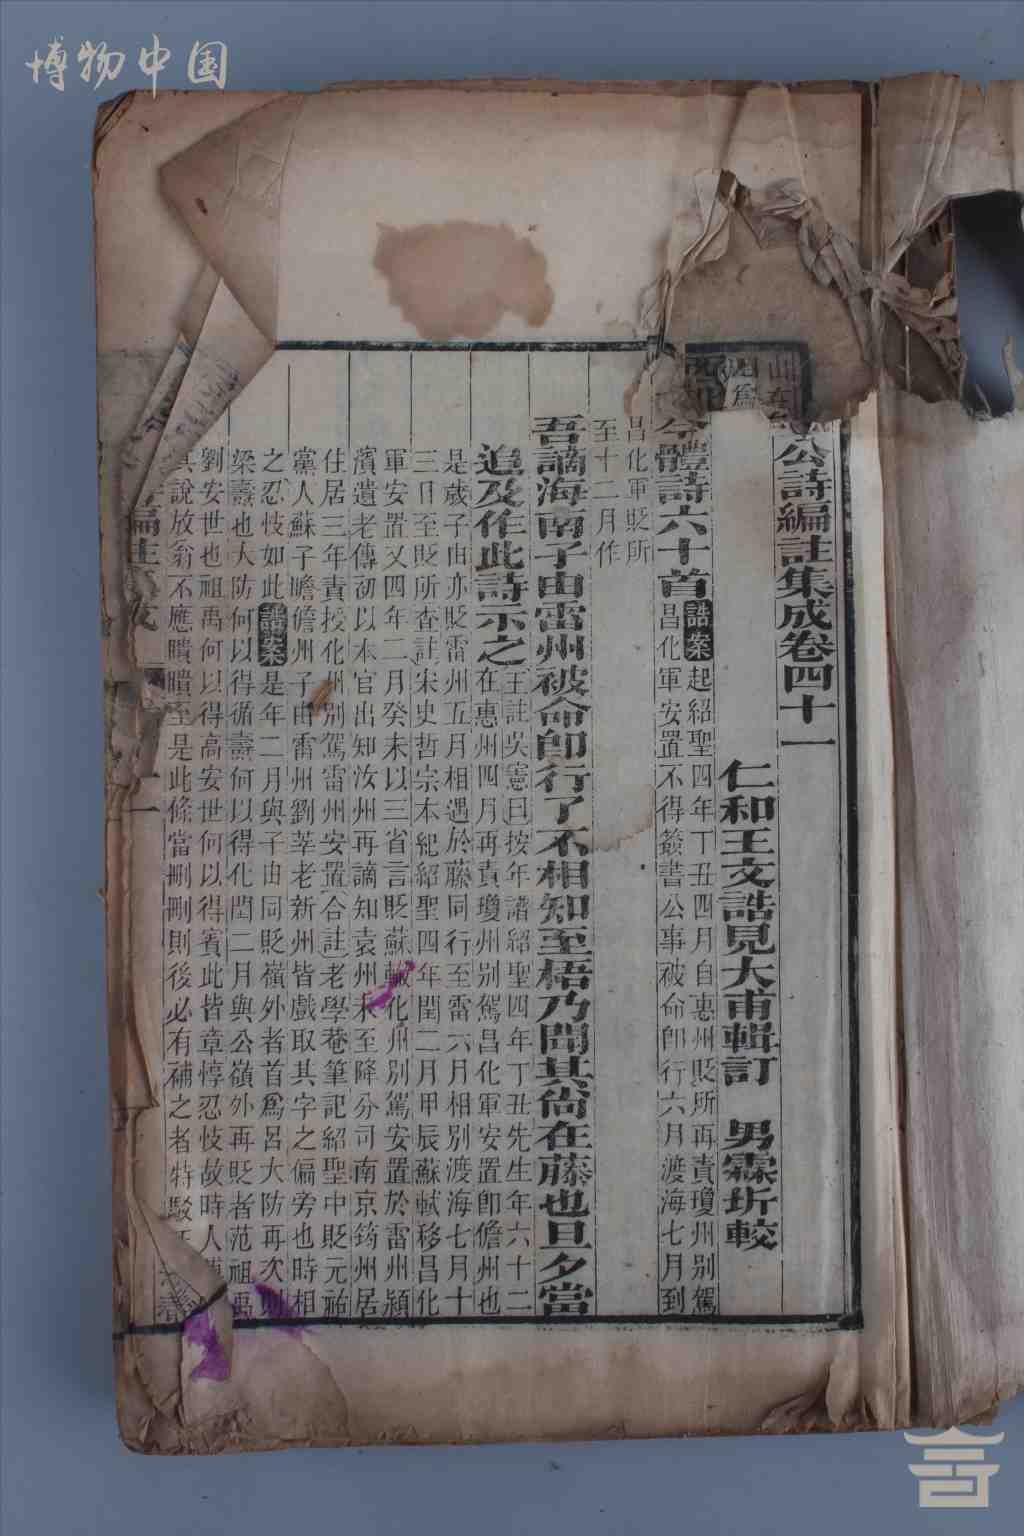 博物中国
公詩編註集成卷四十一
仁和王文誥見大甫輯訂　男霖圻較
今體詩六十首
誥案起紹聖四年丁丑四月自惠州貶所再責瓊州别駕
昌化軍安置不得簽書公事被命卽行六月渡海七月到
昌化軍貶所
至十二月作
吾謫海南子由雷州被命卽行了不相知至梧乃聞其尙在藤也旦夕當
追及作此詩示之
王註吳憲曰按年譜紹聖四年丁丑先生年六十二
在惠州四月再責瓊州别駕昌化軍安置卽儋州也
是歲子由亦貶雷州五月相遇於藤同行至雷六月相别渡海七月十
三日至貶所查註宋史哲宗本紀紹聖四年閏二月甲辰蘇軾移昌化
軍安置又四年二月癸未以三省言貶蘇轍化州别駕安置於雷州潁
濱遺老傳初以本官出知汝州再謫知袁州未至降分司南京筠州居
住居三年責授化州别駕雷州安置合註老學菴筆記紹聖中貶元祐
黨人蘇子瞻儋州子由雷州劉莘老新州皆戲取其字之偏旁也時相
之忍忮如此誥案是年二月與子由同貶嶺外者首爲呂大防再次則
梁燾也大防何以得循燾何以得化閏二月與公嶺外再貶者范祖禹
劉安世也祖禹何以得賓安世何以得高此皆章惇忍忮故時人
其說放翁不應瞶瞶至是此條當刪刪則後必有補之者特駁